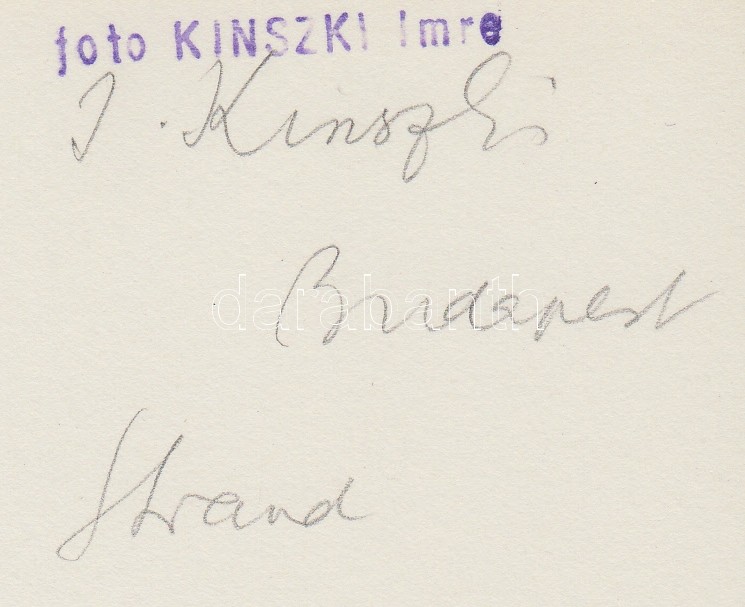 foto KINSZKI Imre
I. Kinszki
Budapest
darabanth
Strand